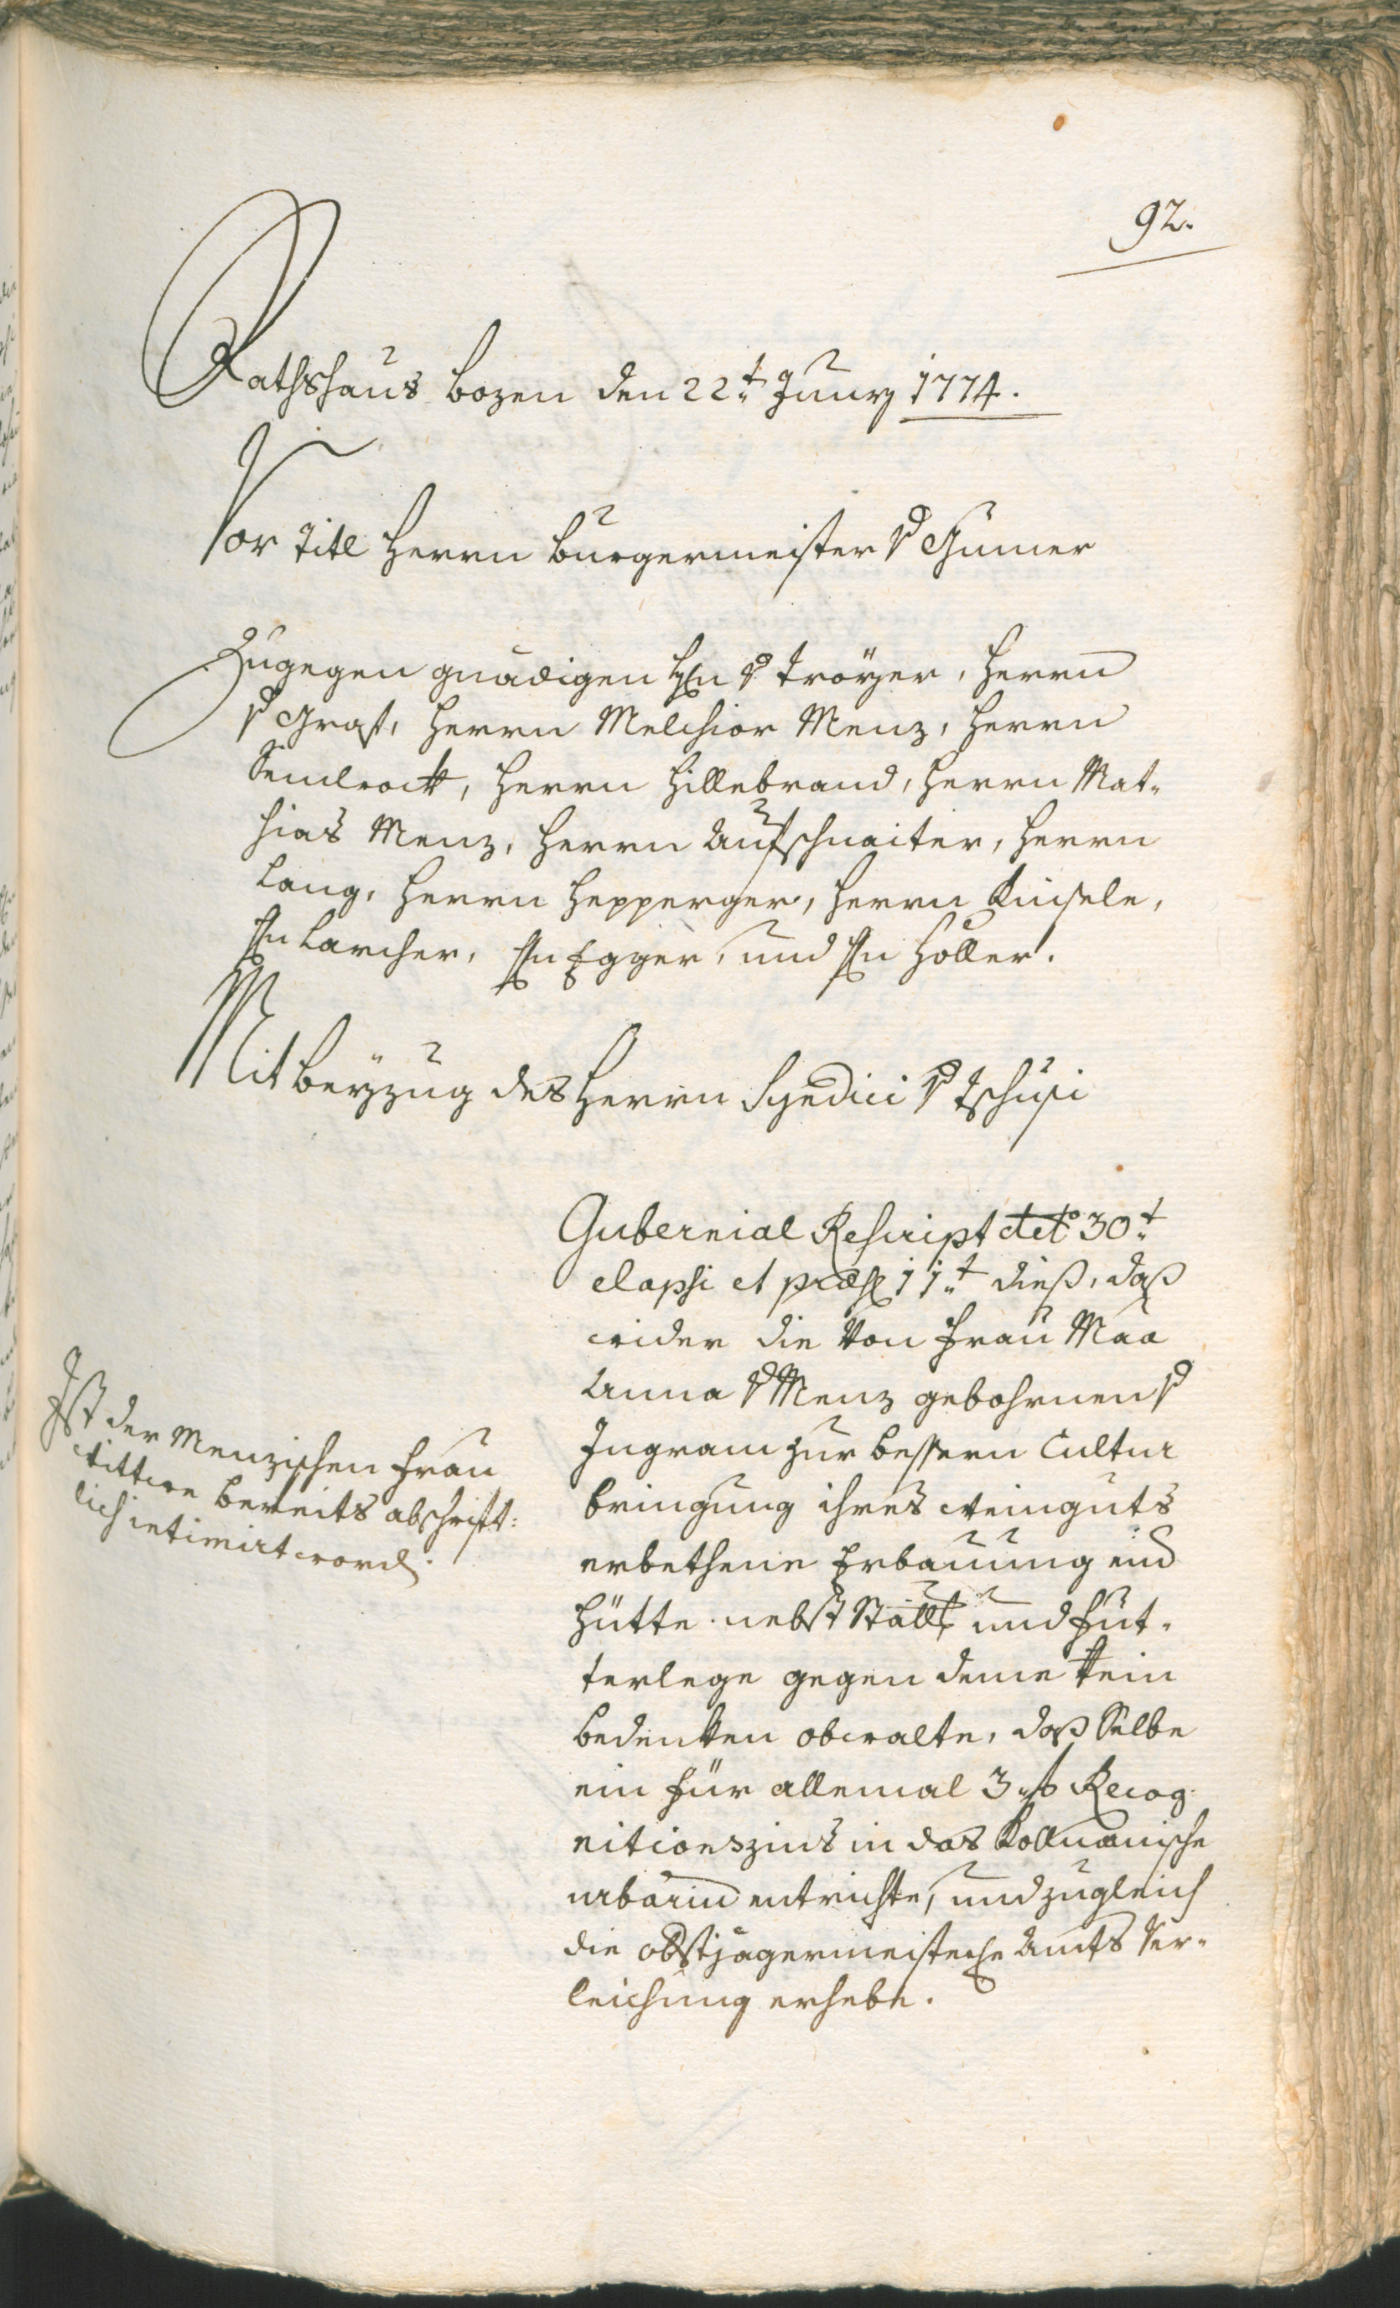 92.
Rathshaus Bozen den 22t Juny 1774.
Vor Titl Herrn Burgermeister v Gumer
Zugegen gnädigen Hrn v Troyer, Herrn
v Graf, Herrn Melchior Menz, Herrn
Semlrock, Herrn Hillebrand, Herrn Mat-
hias Menz, Herrn Aufschnaiter, Herrn
Lang, Herrn Hepperger, Herrn Kinsele,
Hn Larcher, Hn Egger, und Hn Holler.
Mit Beyzug des Herrn Syndici v Tschusi
Gubernial Rescript dto 30t
elapsi et præs 11t dieß, daß
wider die von Frau Maa
Anna v Menz gebohrnen v
Ingram zur bessern Cultur
bringung ihres Weinguts
erbethene Erbauung einer
Hütte nebst Stall und Fut-
terlege gegen deme kein
Bedenken obwalte, daß Selbe
ein für allemal 3 Recog-
nitionszins in das Kollmanische
urbarium entrichte, und zugleich
die obstjägermeisterische Amts Ver-
leichung erhebe.
Ist der Menzischen Frau
Wittwe bereits abschrift-
lich intimirt word.